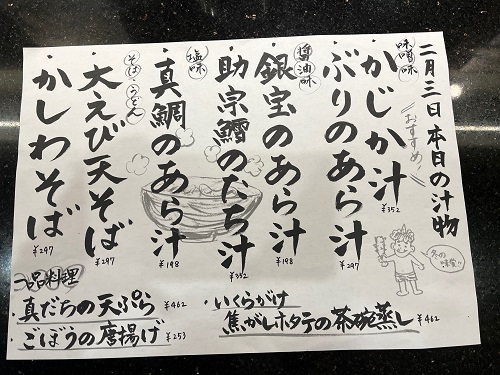 二月三日 本日の汁物
おすすめ！
味噌味
・かじか汁
¥352
・ぶりのあら汁
¥297
醤油味
・銀宝のあら汁
¥198
・助宗鱈のたち汁
¥352
塩味
・真鯛のあら汁
¥198
そば・うどん
・大えび天そば
¥297
・かしわそば
¥297
冬の味覚!!
一品料理
真だちの天ぷら ¥462
ごぼうの唐揚げ ¥253
・いくらがけ
焦がしホタテの茶碗蒸し ¥462